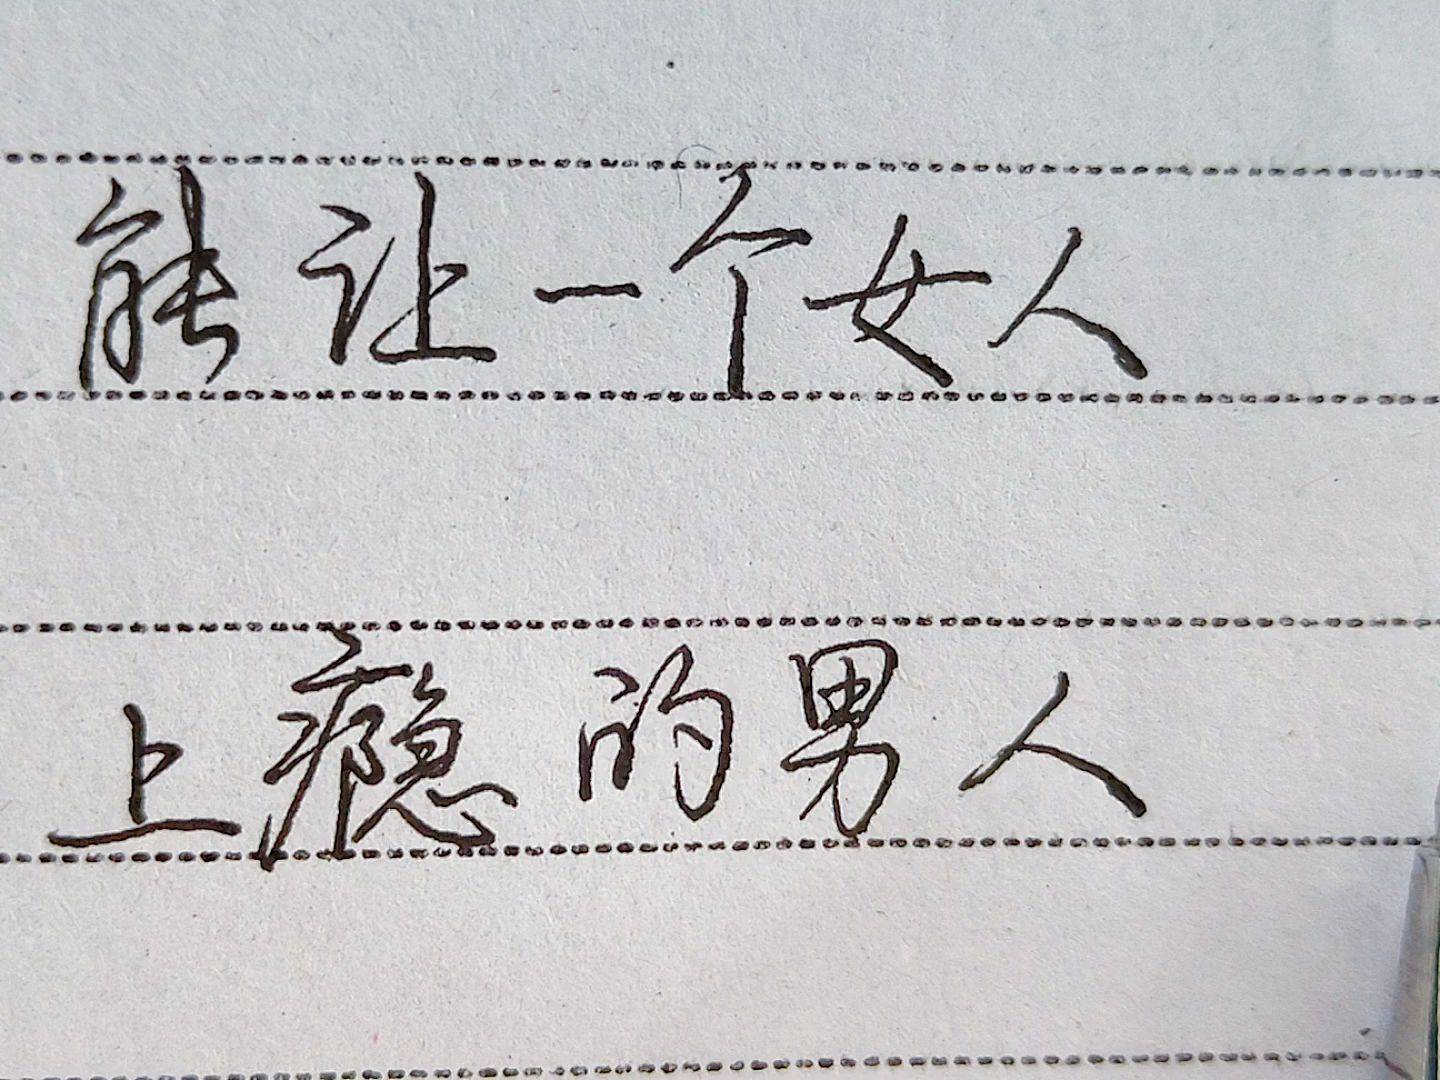 能让一个女人
上瘾的男人